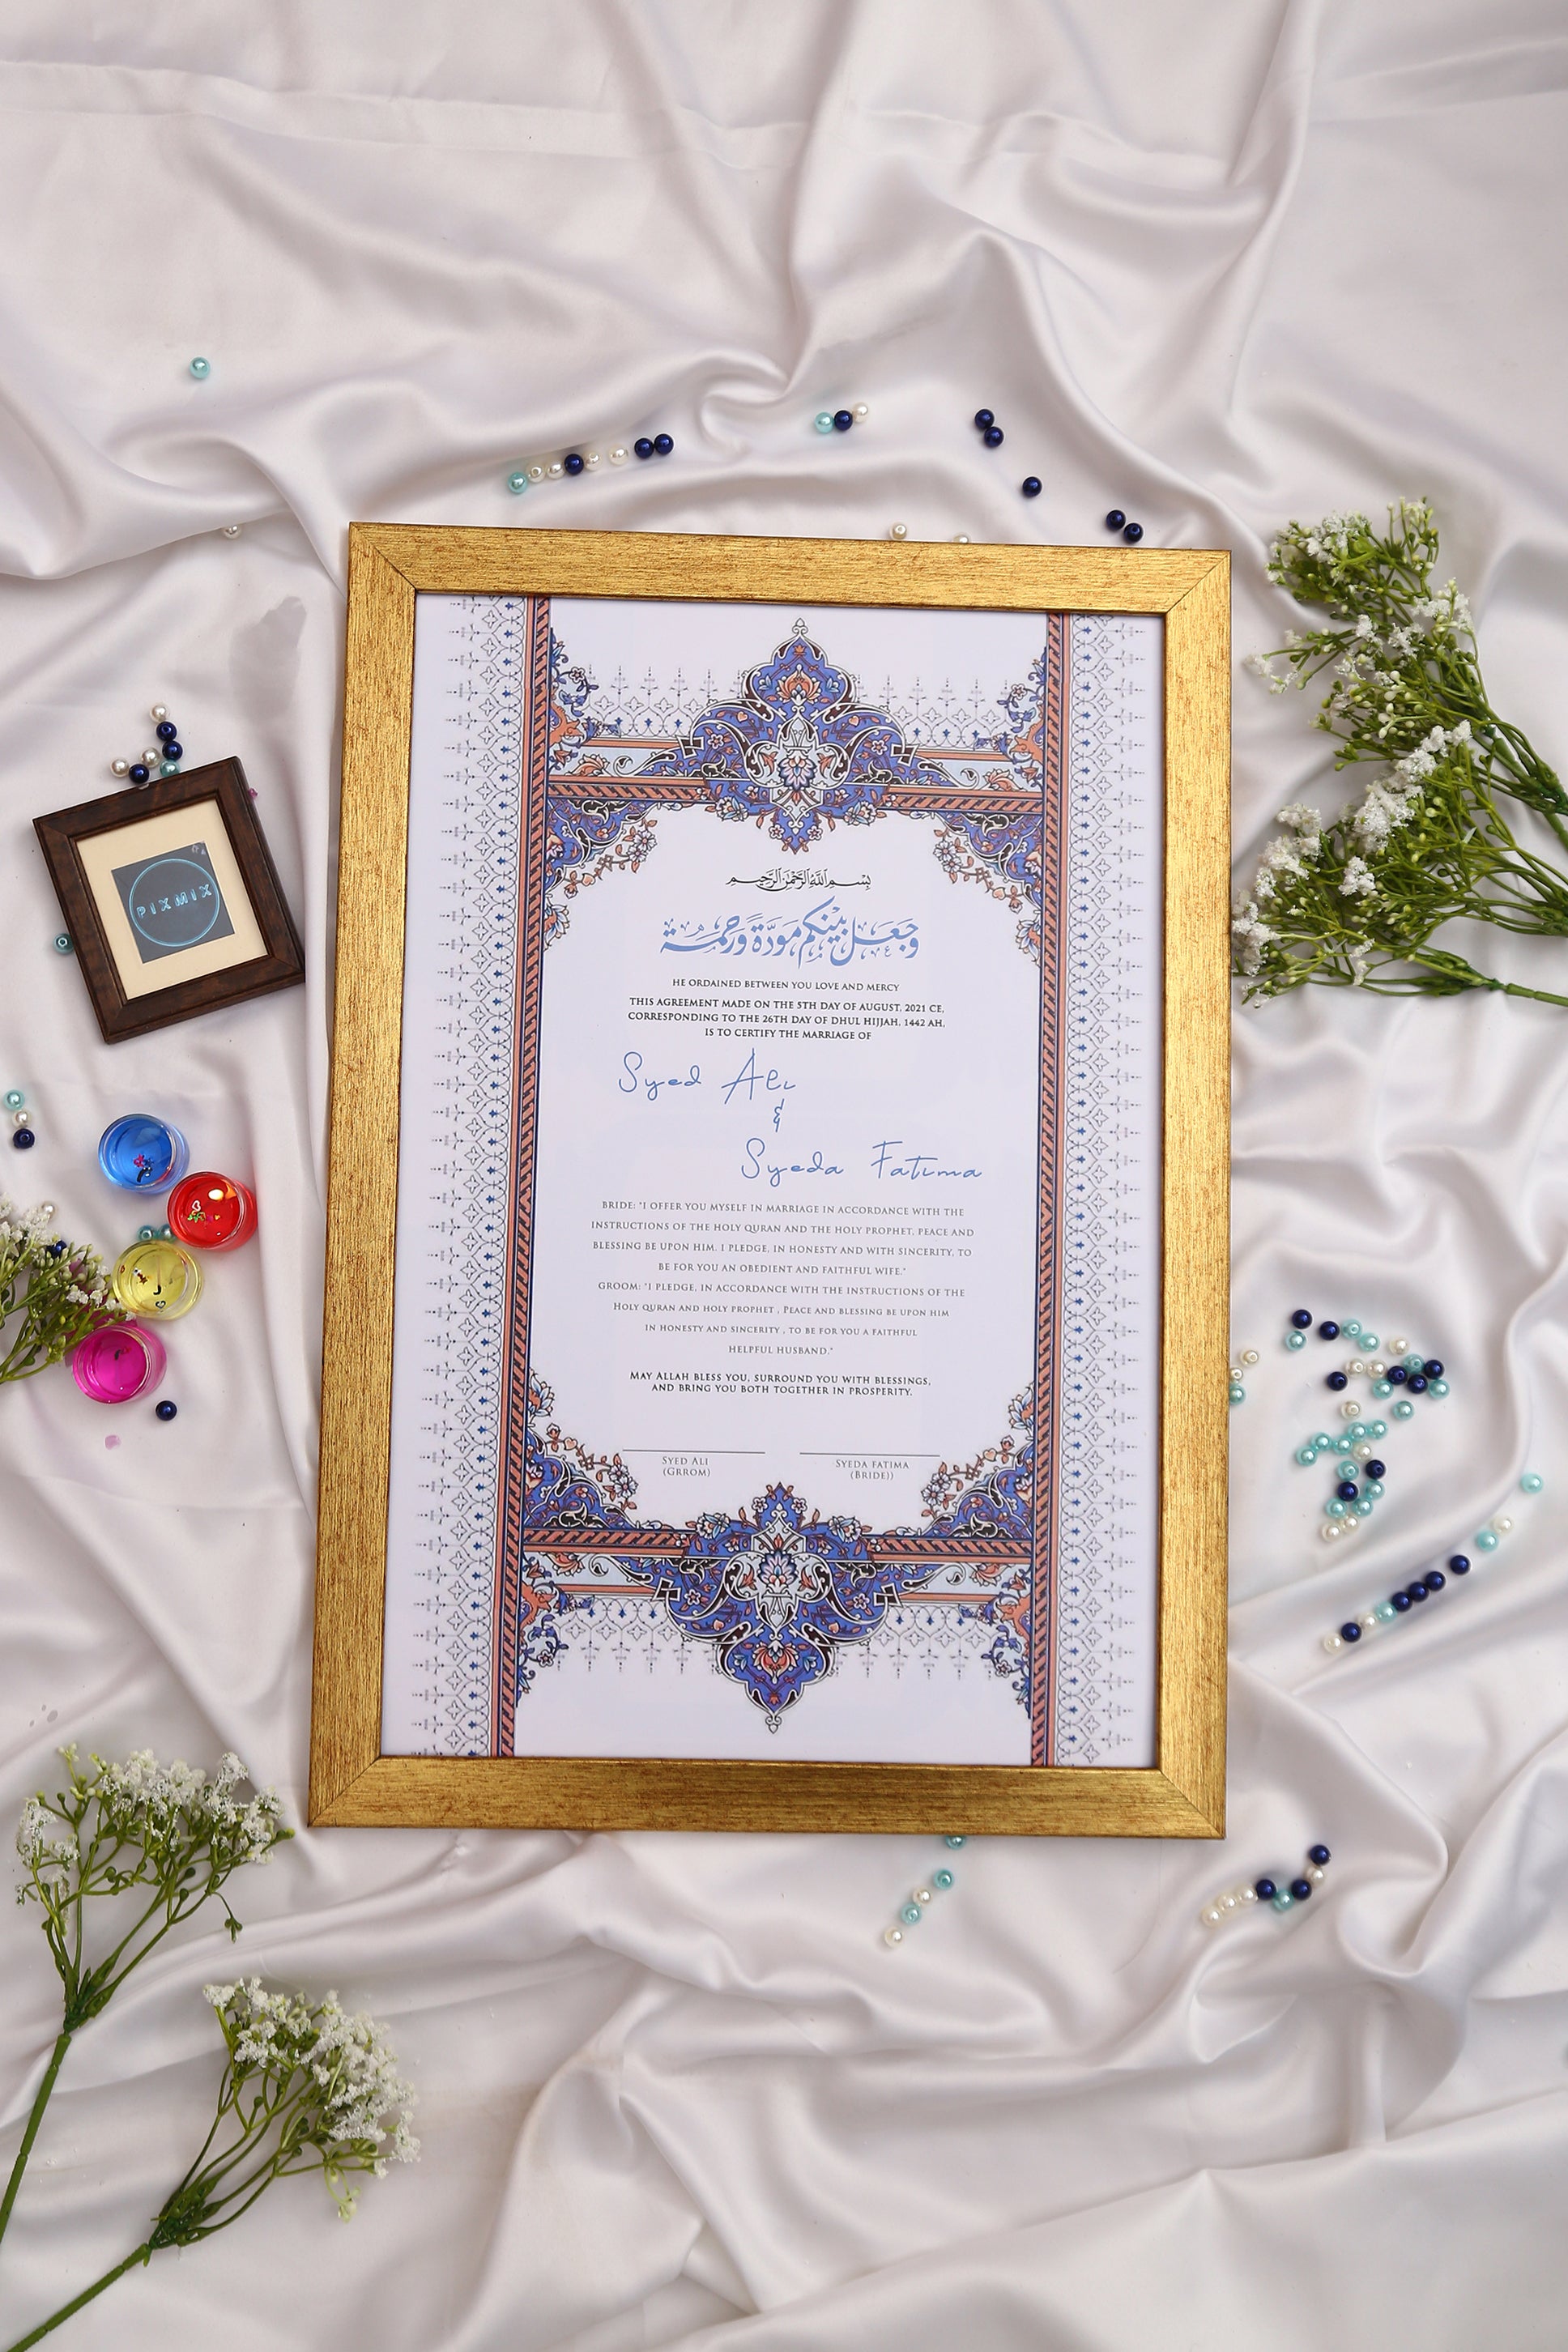 بسم الله الرحمن الرحيم
وجعل بينكم مودة ورحمة
HE ORDAINED BETWEEN YOU LOVE AND MERCY
THIS AGREEMENT MADE ON THE 5TH DAY OF AUGUST, 2021 CE,
CORRESPONDING TO THE 26TH DAY OF DHUL HIJJAH, 1442 AH,
IS TO CERTIFY THE MARRIAGE OF
Syed Ali
&
Syeda Fatima
BRIDE: "I OFFER YOU MYSELF IN MARRIAGE IN ACCORDANCE WITH THE
INSTRUCTIONS OF THE HOLY QURAN AND THE HOLY PROPHET, PEACE AND
BLESSING BE UPON HIM. I PLEDGE, IN HONESTY AND WITH SINCERITY, TO
BE FOR YOU AN OBEDIENT AND FAITHFUL WIFE."
GROOM: "I PLEDGE, IN ACCORDANCE WITH THE INSTRUCTIONS OF THE
HOLY QURAN AND HOLY PROPHET , PEACE AND BLESSING BE UPON HIM
IN HONESTY AND SINCERITY , TO BE FOR YOU A FAITHFUL
HELPFUL HUSBAND."
MAY ALLAH BLESS YOU, SURROUND YOU WITH BLESSINGS,
AND BRING YOU BOTH TOGETHER IN PROSPERITY.
SYED ALI
(GRROM)
SYEDA FATIMA
(BRIDE))
PIXMIX